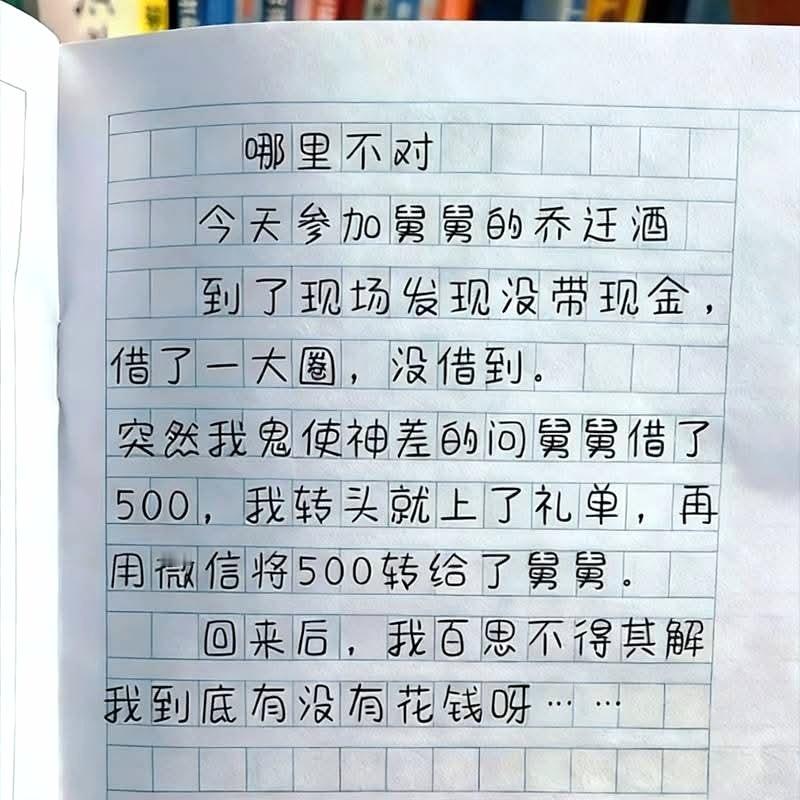 哪里不对
今天参加舅舅的乔迁酒
到了现场发现没带现金，
借了一大圈，没借到。
突然我鬼使神差的问舅舅借了
500，我转头就上了礼单，再
用微信将500转给了舅舅。
回来后，我百思不得其解
我到底有没有花钱呀……